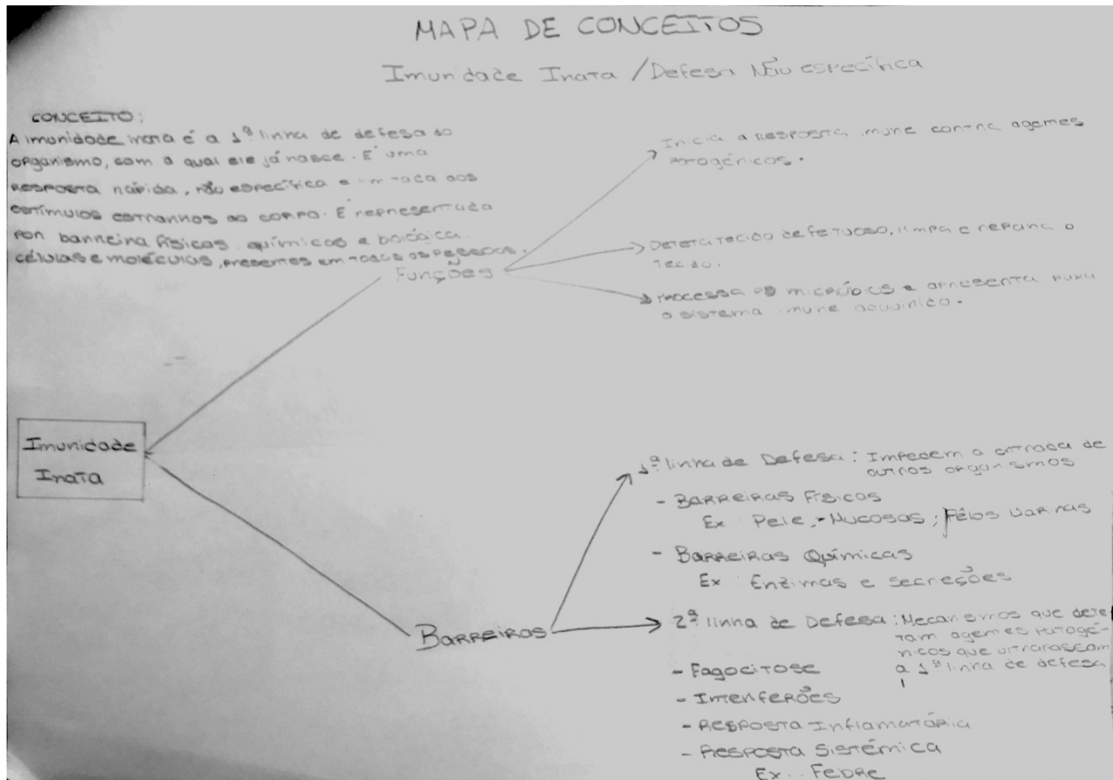 MAPA DE CONCEITOS
Imunidade Inata / Defesa Não específica
CONCEITO:
A imunidade inata é a 1ª linha de defesa do
organismo, com a qual ele já nasce. É uma
resposta rápida, não específica e limitada aos
estímulos estranhos ao corpo. É representada
por barreira físicas, químicas e biológica,
células e moléculas, presentes em todas as pessoas.
Funções
Inicia a resposta imune contra agentes
patogénicos.
Deteta tecido defetuoso, limpa e repara o
tecido.
Processa os micróbios e apresenta para
o sistema imune adquirido.
Imunidade
Inata
Barreiras
1ª linha de Defesa: Impedem a entrada de
outros organismos
- Barreiras Físicas
Ex: Pele, Mucosas; Pêlos Narinas
- Barreiras Químicas
Ex: Enzimas e secreções
2ª linha de Defesa: Mecanismos que dete
tam agentes patogé-
nicos que ultrapassam
a 1ª linha de defesa
- Fagocitose
- Interferões
- Resposta Inflamatória
- Resposta Sistémica
Ex.: Febre